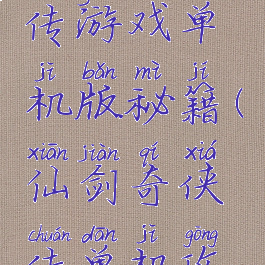 传游戏单
jī bǎn mì jí
机版秘籍(
xiān jiàn qí xiá
仙剑奇侠
chuán dān jī gōng
传单机攻